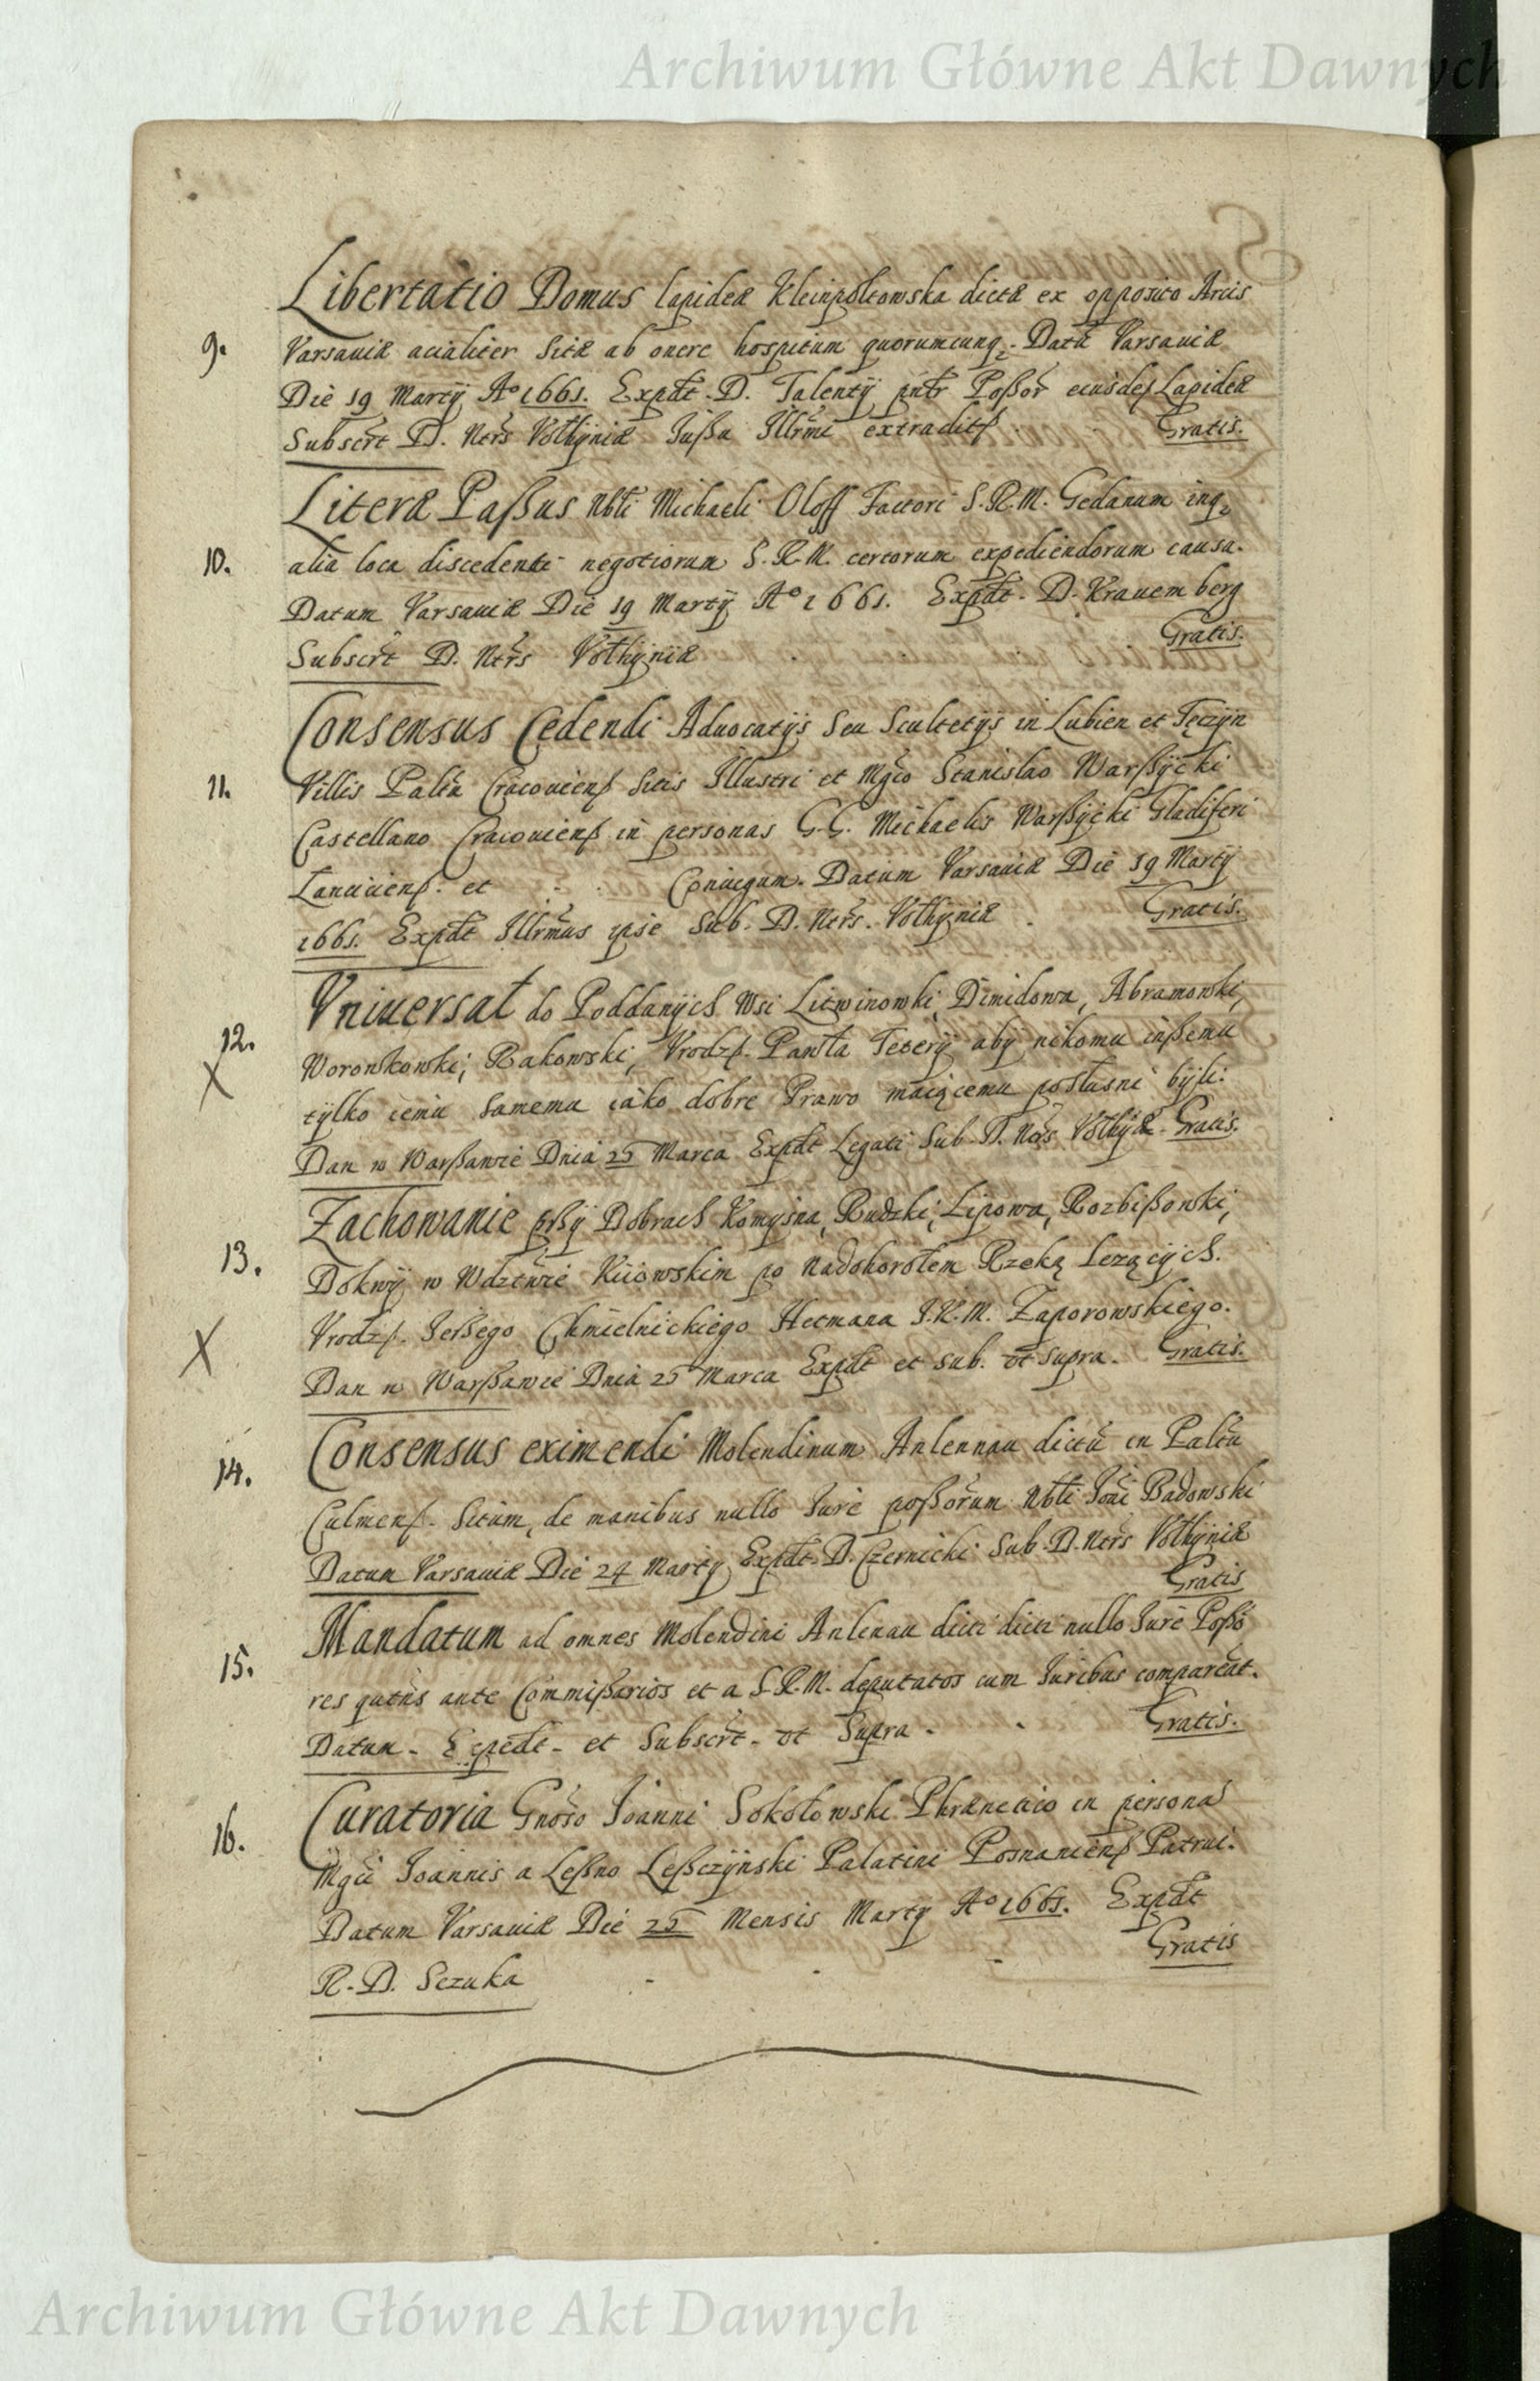 Archiwum Główne Akt Dawnych
Libertatio Domus lapideæ Kleinpoltowska dictæ ex opposito Arcis
9. Varsaviæ acialiter sitæ ab onere hospitum quorumcunq; Datũ Varsaviæ
Die 19 Martij Aº 1661. Expdt. D. Talentij pntr Poßor eiusdeß Lapideæ
Subscrt D. Ntrs Vołhyniæ Jußu Illrmi extraditß. Gratis.
Literæ Paßus Nbli Michaeli Oloff Factori S.R.M. Gedanum inq;
10. alia loca discedenti negotiorum S.R.M. certorum expediendorum causa.
Datum Varsaviæ Die 19 Martij Aº 1661. Expdt. D. Krauemberg
Subscrt D. Ntrs Vołhyniæ Gratis.
Consensus Cedendi Advocatijs Seu Scultetijs in Lubien et Tęczyn
11. Villis Paltu Cracovienß sitis Illustri et Mgco Stanislao Warßycki
Castellano Cracovienß in personas G.G. Michaelis Warßycki Gladiferi
Lancicienß. et Coniugum. Datum Varsaviæ Die 19 Martij
1661. Expdt Illrmus ipse Sub. D. Ntrs. Vołhyniæ. Gratis.
Vniuersał do Poddanych Wsi Litwinowki, Dimidowa, Abramowki,
12. Woronkowki, Rakowski, Vrodzß. Pawła Tetery aby nikomu inßemu
X
tylko iemu samemu iáko dobre Prawo maiącemu posłusni byli.
Dan w Warßawie Dnia 25 Marca Expdt Legati Sub D. Ntrs Vołhyæ. Gratis.
Zachowanie prßy Dobrach Komyśna, Rudzki, Lipowa, Rozbißowki,
13. Dokwy w Wdztwie Kiiowskim po Nadohorołem Rzeką Lezących.
X Vrodzß. Jerßego Chmielnickiego Hetmana J.K.M. Zaporowskiego.
Dan w Warßawie Dnia 25 Marca Expdt et sub. vt supra. Gratis.
Consensus eximendi Molendinum Anlennau dictũ in Paltu
14. Culmenß. Situm, de manibus nullo Jure poßorum Nbli Joni Badowski
Datum Varsaviæ Die 24 Martij Expdt. D. Czernicki Sub. D. Ntrs Vołhyniæ
Gratis
Mandatum ad omnes Molendini Anlenau dicti dicti nullo Jure Poßo
15. res qutns ante Commißarios et a S.R.M. deputatos cum Juribus compareãt.
Datum. Expedt. et Subscrt. vt Supra. Gratis.
Curatoria Gnoso Joanni Sokołowski Phrænetico in personas
16. Mgci Joannis a Leßno Leßczyński Palatini Posnanienß Patrui.
Datum Varsaviæ Die 25 Mensis Martij Aº 1661. Expdt
R. D. Sczuka Gratis
Archiwum Główne Akt Dawnych